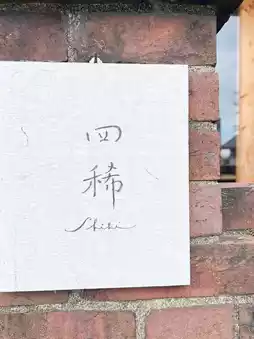 四
稀
Shiki